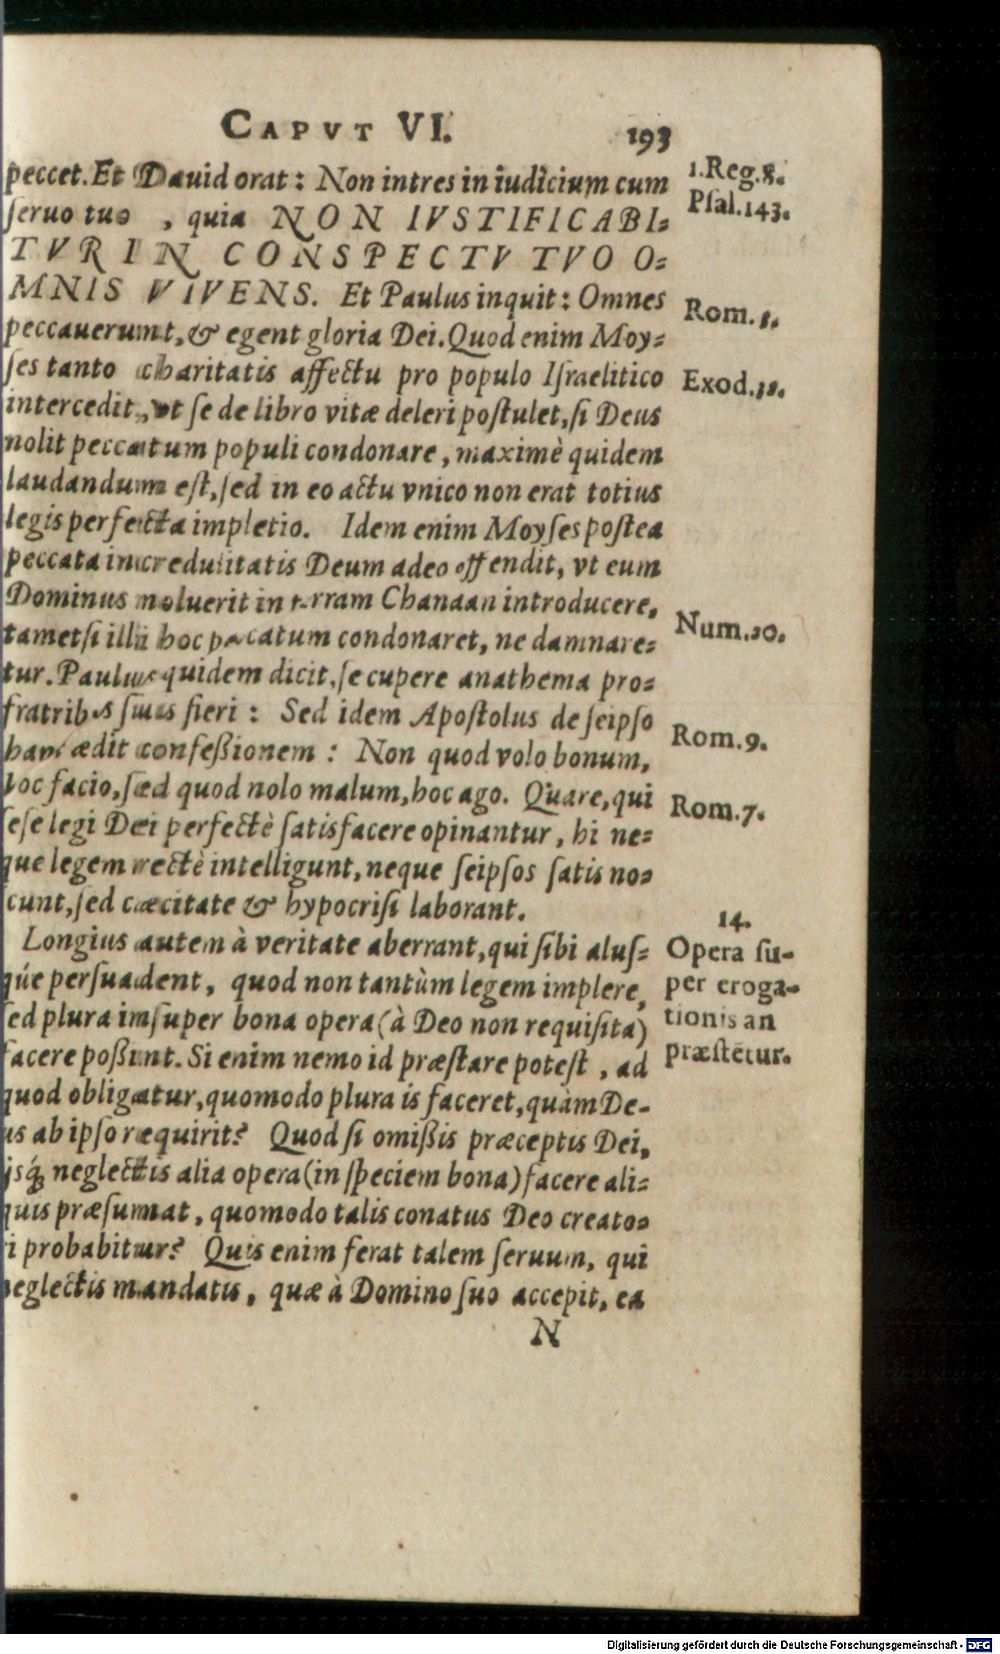 CAPVT VI. 193
peccet. Et Dauid orat: Non intres in iudicium cum
1.Reg.8.
ſeruo tuo , quia NON IVSTIFICABI-
Pſal.143.
TVR IN CONSPECTV TVO O-
MNIS VIVENS. Et Paulus inquit: Omnes
peccauerunt, & egent gloria Dei. Quod enim Moy-
Rom.3.
ſes tanto charitatis affectu pro populo Iſraelitico
Exod.32.
intercedit, vt ſe de libro vitæ deleri poſtulet, ſi Deus
nolit peccatum populi condonare, maximè quidem
laudandum eſt, ſed in eo actu vnico non erat totius
legis perfecta impletio. Idem enim Moyſes poſtea
peccata incredulitatis Deum adeo offendit, vt eum
Dominus noluerit in terram Chanaan introducere,
Num.20.
tametſi illi hoc peccatum condonaret, ne damnare-
tur. Paulus quidem dicit, ſe cupere anathema pro-
fratribus ſuis fieri: Sed idem Apoſtolus de ſeipſo
Rom.9.
hanc ædit confeßionem: Non quod volo bonum,
hoc facio, ſed quod nolo malum, hoc ago. Quare, qui
Rom.7.
ſeſe legi Dei perfectè ſatisfacere opinantur, hi ne-
que legem rectè intelligunt, neque ſeipſos ſatis no-
cunt, ſed cæcitate & hypocriſi laborant.
14.
Longius autem à veritate aberrant, qui ſibi aliuſ-
Opera ſu-
qúe perſuadent, quod non tantùm legem implere,
per eroga-
ſed plura inſuper bona opera (à Deo non requiſita)
tionis an
facere poßunt. Si enim nemo id præſtare poteſt, ad
præſtētur.
quod obligatur, quomodo plura is faceret, quàm De-
us ab ipſo requirit? Quod ſi omißis præceptis Dei,
ijsq́ neglectis alia opera (in ſpeciem bona) facere ali-
quis præſumat, quomodo talis conatus Deo creato-
ri probabitur? Quis enim ferat talem ſeruum, qui
neglectis mandatis, quæ à Domino ſuo accepit, ea
N
Digitalisierung gefördert durch die Deutsche Forschungsgemeinschaft - DFG